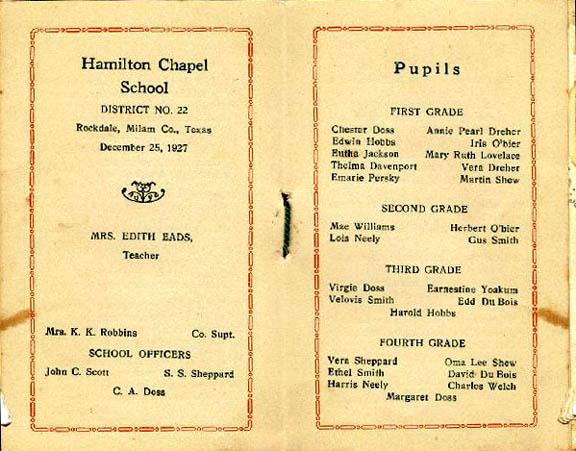 Hamilton Chapel
School
DISTRICT NO. 22
Rockdale, Milam Co., Texas
December 25, 1927
MRS. EDITH EADS,
Teacher
Mrs. K. K. Robbins Co. Supt.
SCHOOL OFFICERS
John C. Scott S. S. Sheppard
C. A. Doss
Pupils
FIRST GRADE
Chester Doss Annie Pearl Dreher
Edwin Hobbs Iris O'bier
Eutha Jackson Mary Ruth Lovelace
Thelma Davenport Vera Dreher
Emarie Persky Martin Shew
SECOND GRADE
Mae Williams Herbert O'bier
Lois Neely Gus Smith
THIRD GRADE
Virgie Doss Earnestine Yoakum
Velovis Smith Edd Du Bois
Harold Hobbs
FOURTH GRADE
Vera Sheppard Oma Lee Shew
Ethel Smith David Du Bois
Harris Neely Charles Welch
Margaret Doss